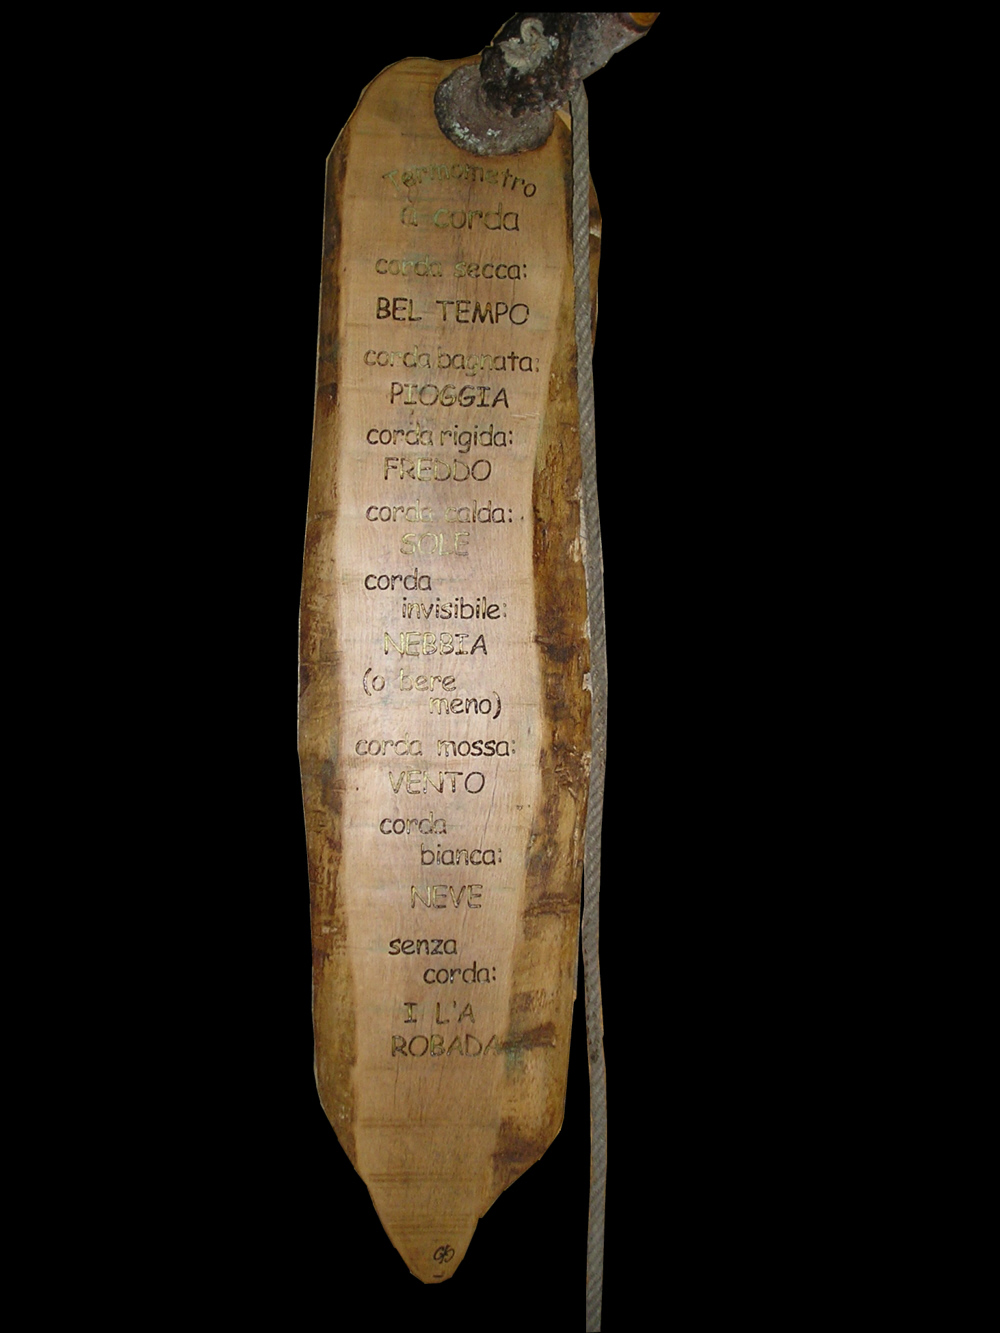 Termometro
a corda
corda secca:
BEL TEMPO
corda bagnata:
PIOGGIA
corda rigida:
FREDDO
corda calda:
SOLE
corda
invisibile:
NEBBIA
(o bere
meno)
corda mossa:
VENTO
corda
bianca:
NEVE
senza
corda:
I L'A
ROBADA